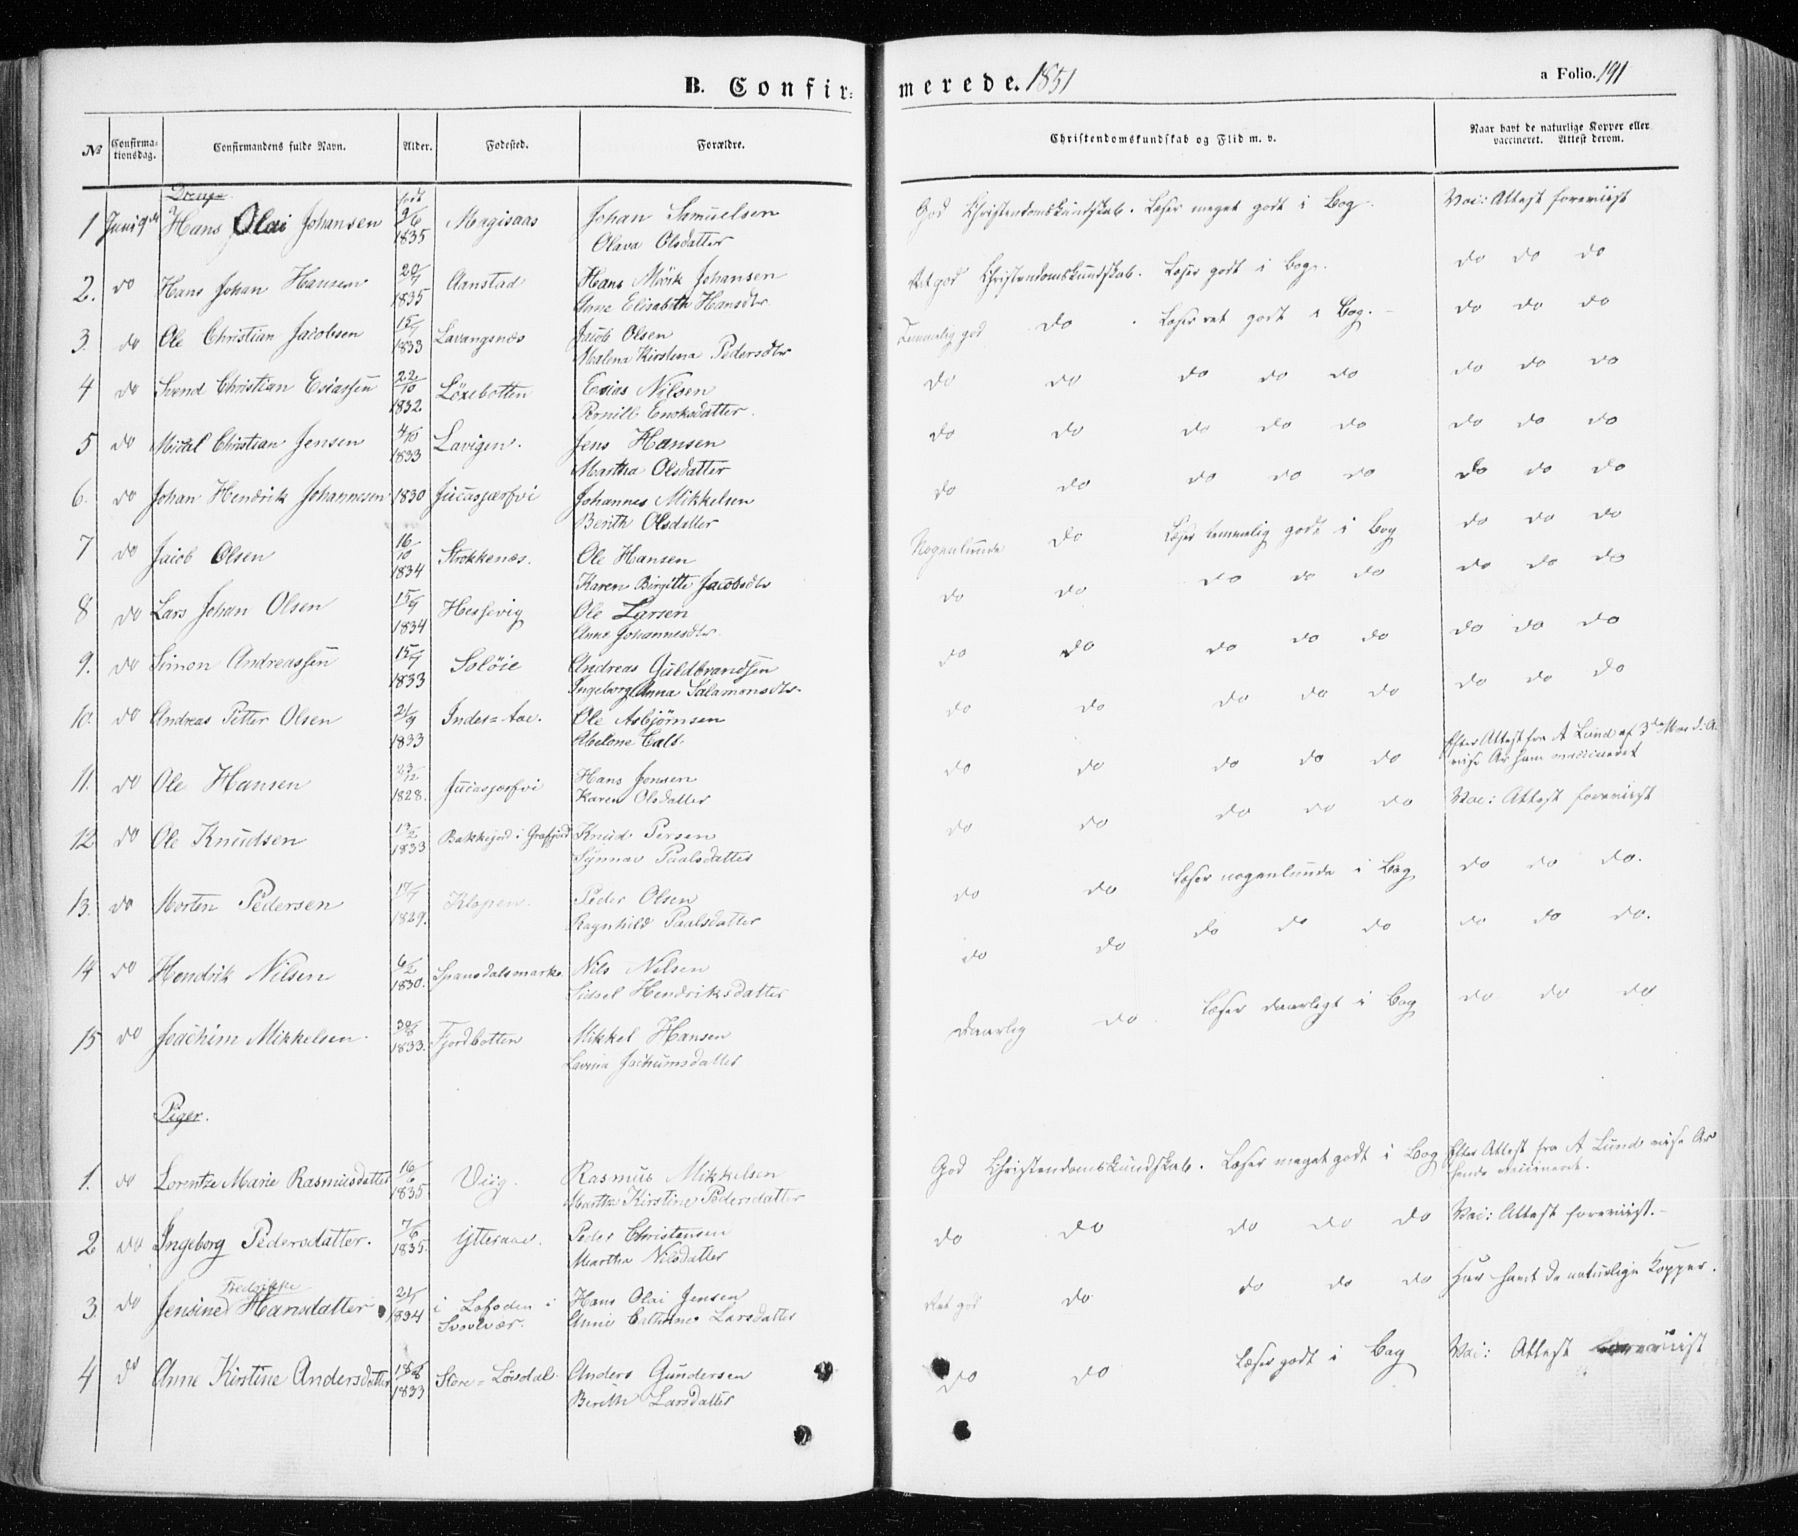 B. Confir= merede. 1851 a Folio. 191
No Confirma-tionsdag. Confirmandens fulde Navn. Alder. Fødested. Forældre. Christendomskundskab og Flid m. v. Naar havt de naturlige Kopper eller vaccineret. Attest derom.
Drenge
1 Juni 9de Hans Olai Johansen født 9/6 1835 Magisaas Johan Samuelsen God Christendomskundskab. Læser meget godt i Bog. Vac: Attest foreviist
Olava Olsdatter
2. do Hans Johan Hansen 20/7 1835 Aanstad Hans Mörk Johansen Ret god Christendomskundskab. Læser godt i Bog. do do do
Anne Elisabeth Hansdtr
3. do Ole Christian Jacobsen 15/7 1833 Lavangsnæs Jacob Olsen Temmelig god do. Læser ret godt i Bog. do do do
Malena Kirstena Pedersdtr
4 do Svend Christian Esiassen 22/10 1832 Löxebotten Esias Nilsen do do do do do do do do
Pernill Enoksdatter.
5 do Mikal Christian Jensen 4/10 1833 Lavigen. Jens Hansen do do do do do do do do
Martha Olsdatter
6. do Johan Hendrik Johannesen 1830 Jucasjærfvi Johannes Mikkelsen do do do do do do do do
Berith Olsdatter
7 do Jacob Olsen 16/10 1834 Strokkenæs. Ole Hansen Nogenlunde do Læser temmelig godt i Bog do do do
Karen Birgitte Jacobsdtr
8 do Lars Johan Olsen 15/9 1834 Hessevig Ole Larsen do do do do do do do do
Anne Johannesdtr.
9. do Simon Andreassen 15/7 1833 Soløie Andreas Guldbrandsen do do do do do do do do
Ingeborg Anna Salamonsdtr.
10. do Andreas Petter Olsen 21/9 1833 Indes=Aae. Ole Asbjørnsen do do do do do do do do
Abelone
11. do Ole Hansen 23/12 1828. Jucasjærfvi Hans Jonsen do do do do do Efter Attest fra A Lund af 3de Mai d. A.
Karen Olsdatter vise Ar ham vaccineret
12 do Ole Knudsen 13/2 1833 Bakkejord i Græfjord Knud Persen do do do do do Vac: Attest foreviist
Synnav Paalsdatter
13. do Morten Pedersen 17/7 1829. Klopen. Peder Olsen do do Læser nogenlunde i Bog do do do.
Ragnhild Paalsdatter
14 do Hendrik Nilsen 6/2 1830. Spansdalsmark. Nils Nilsen do do do do do do do do.
Sidsel Hendriksdatter
15 do Joachim Mikkelsen. 30/8 1833. Fjordbotten Mikkel Hansen Daarlig do. Læser daarligt i Bog do do do
Lavina Jochumsdatter
Piger.
1. do Lorentze Marie Rasmusdatter 16/6 1835 Viig. Rasmus Mikkelsen God Christendomskundskab. Læser meget godt i Bog Efter Attest fra A Lund vise Ar
Martha Kirstine Pedersdatter hende vaccineret.
2 do Ingeborg Pedersdatter. 7/6 1835. Ytteraae. Peder Christensen do do do do do Vac: Attest foreviist.
Martha Nilsdatter
3. do Jensine Fredrikke Hansdatter 21/1 1834 i Lofoden i Hans Olai Jensen Ret god do do do do Har havt de naturlige Kopper.
Svolvær. Anne Cathrine Larsdatter
4 do Anne Kirstine Andersdatter 1833 Store=Løvdal. Anders Gundersen do do Læser godt i Bog Vac: Attest foreviist
Berith Larsdatter